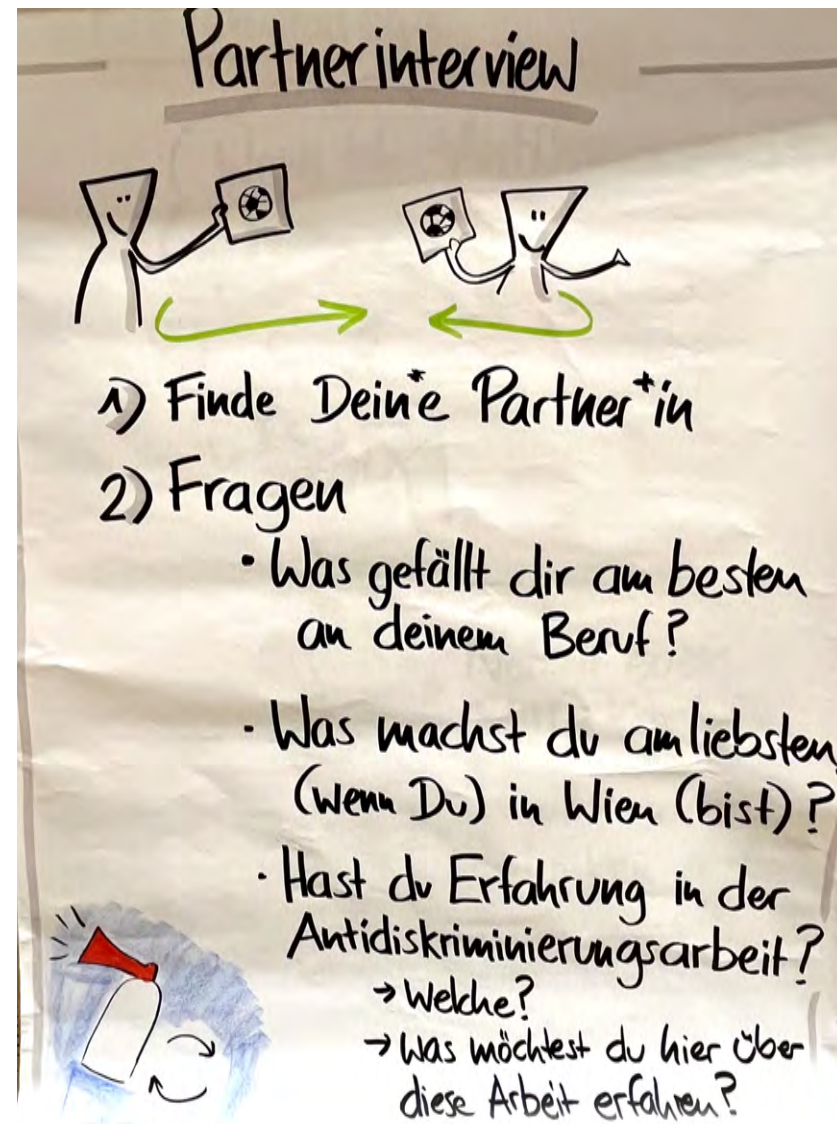 Partnerinterview
1) Finde Dein*e Partner*in
2) Fragen
· Was gefällt dir am besten
an deinem Beruf?
· Was machst du am liebsten,
(wenn Du) in Wien (bist)?
· Hast du Erfahrung in der
Antidiskriminierungsarbeit?
→ Welche?
→ Was möchtest du hier über
diese Arbeit erfahren?